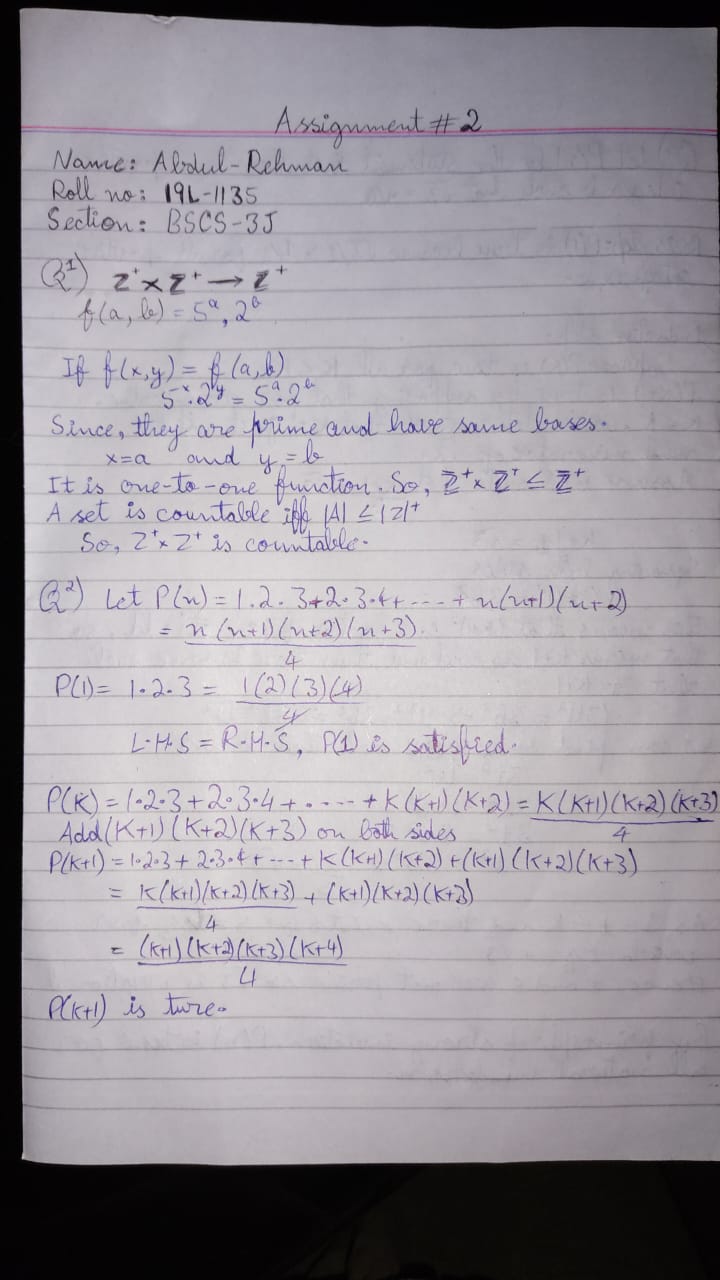 Assignment # 2
Name: Abdul-Rehman
Roll no: 19L-1135
Section: BSCS-3J
Q1) Z⁺×Z⁺→Z⁺
f(a,b) = 5ᵃ, 2ᵇ
If f(x,y) = f(a,b)
5ˣ.2ʸ = 5ᵃ.2ᵇ
Since, they are prime and have same bases.
x=a and y=b
It is one-to-one function. So, Z⁺×Z⁺ ≤ Z⁺
A set is countable iff |A| ≤ |Z|⁺
So, Z⁺×Z⁺ is countable.
Q2) Let P(n) = 1.2.3+2.3.4+ ---- + n(n+1)(n+2)
= n(n+1)(n+2)(n+3)
4
P(1) = 1.2.3 = 1(2)(3)(4)
4
L.H.S = R.H.S, P(1) is satisfied.
P(K) = 1.2.3+2.3.4+.----+K(K+1)(K+2) = K(K+1)(K+2)(K+3)
4
Add (K+1)(K+2)(K+3) on both sides
P(K+1) = 1.2.3+2.3.4+---+K(K+1)(K+2)+(K+1)(K+2)(K+3)
= K(K+1)(K+2)(K+3) + (K+1)(K+2)(K+3)
4
= (K+1)(K+2)(K+3)(K+4)
4
P(K+1) is ture.